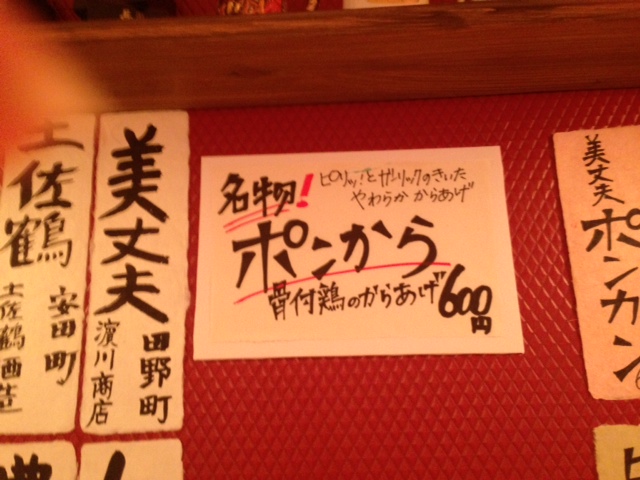 名物!
ピリッ!とガーリックのきいた
やわらか からあげ
ポンから
骨付鶏のからあげ 600円
美丈夫
田野町
濱川商店
土佐鶴
安田町
土佐鶴酒造
美丈夫
ポンカン